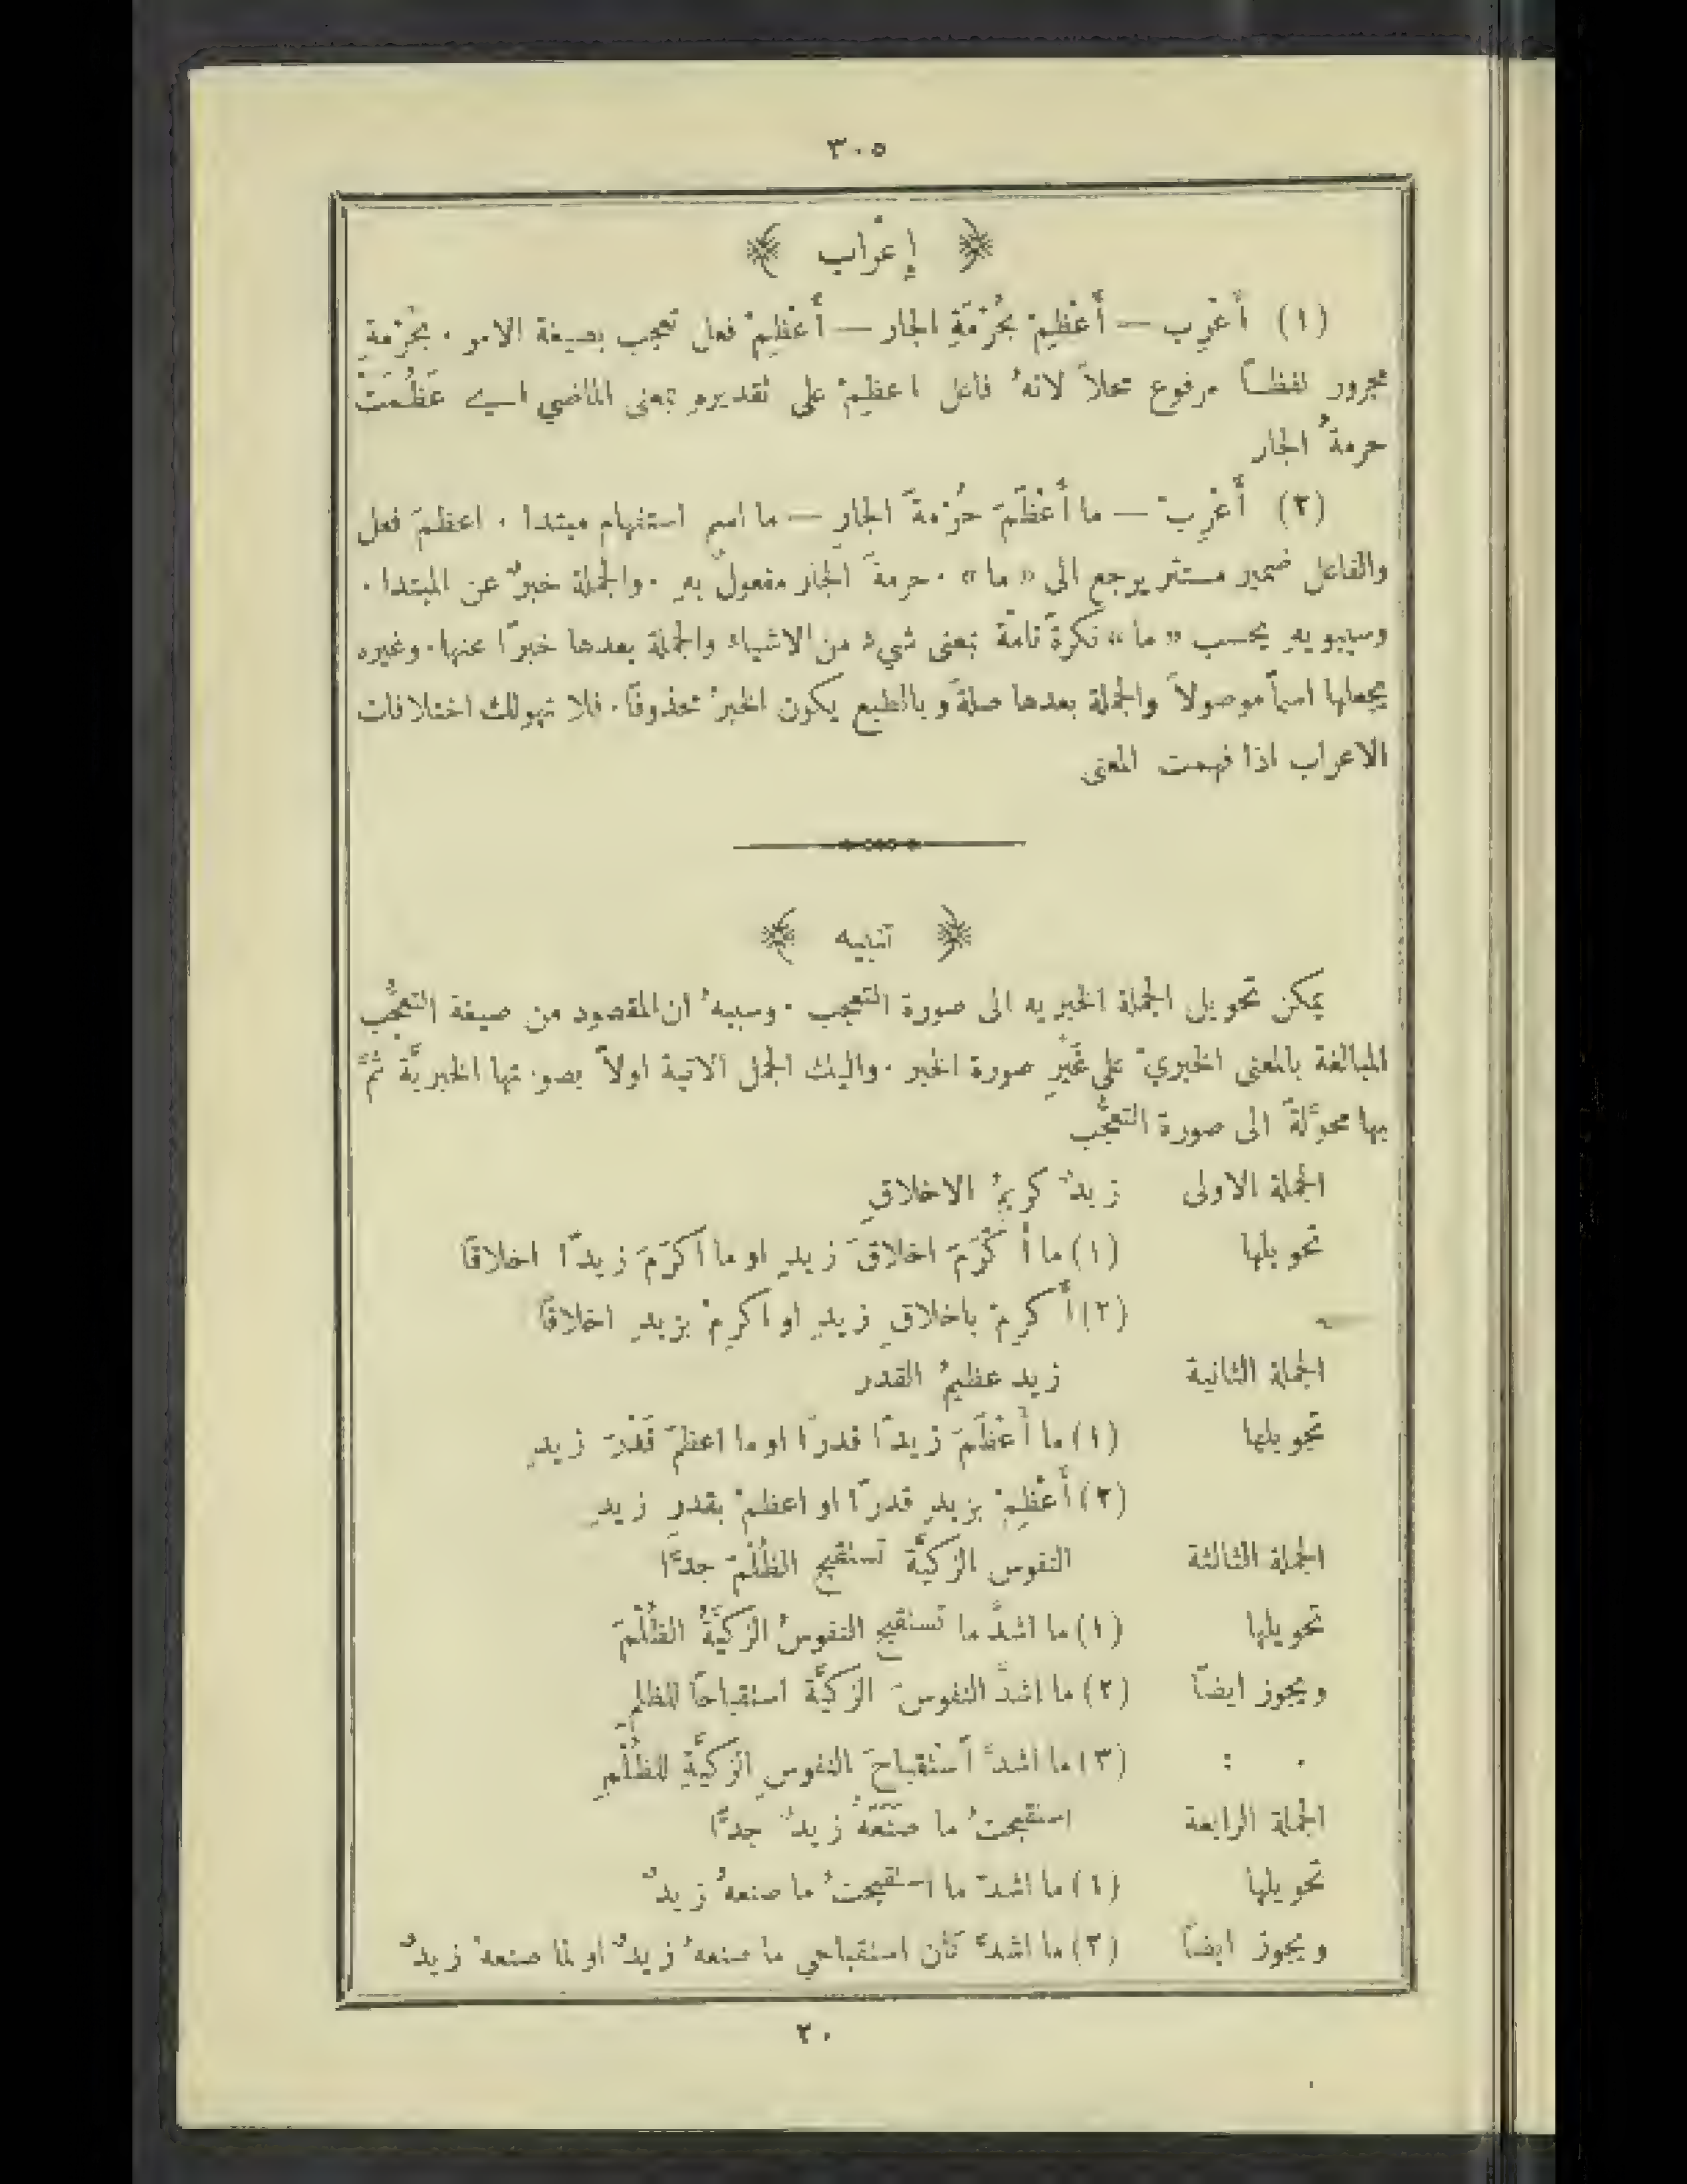 ٣٠٥
﴿ إِعْراب ﴾
(١) أَعْرِب — أَعْظِمْ بحُرْمَةِ الجار — أَعْظِمْ فعل تعجب بصيغة الامر . بحُرْمةِ
مجرور لفظاً مرفوع محلاً لانهُ فاعل اعظِمْ على تقديره بمعنى الماضي اي عَظُمَتْ
حرمةُ الجار
(٢) أَعْرِبْ — ما أَعْظَمَ حُرْمةَ الجارِ — ما اسم استفهام مبتدا . اعظمَ فعل
والفاعل ضمير مستتر يرجع الى «ما» . حرمةَ الجار مفعول بهِ . والجملة خبرٌ عن المبتدا .
وسيبويهِ يحسب «ما» نكرةً تامةً بمعنى شيءٍ من الاشياء والجملة بعدها خبرًا عنها . وغيره
يجعلها اسماً موصولاً والجملة بعدها صلةً وبالطبع يكون الخبرُ محذوفًا . فلا تهولك اختلافات
الاعراب اذا فهمت المعنى
﴿ تنبيه ﴾
يمكن تحويل الجملة الخبريه الى صورة التعجب . وسببهُ ان المقصود من صيغة التعجُّب
المبالغة بالمعنى الخبريّ على غَيْرِ صورة الخبر . واليك الجمل الآتية اولاً بصورتها الخبريَّة ثمَّ
بها محوَّلةً الى صورة التعجُّب
الجملة الاولى زيدٌ كريمُ الاخلاقِ
تحويلها (١) ما أَكْرَمَ اخلاقَ زيدٍ او ما اكرَمَ زيدًا اخلاقًا
(٢) أَكرِمْ باخلاقِ زيدٍ او اكرِمْ بزيدٍ اخلاقًا
الجملة الثانية زيد عظيمُ القدر
تحويلها (١) ما أَعْظَمَ زيدًا قدرًا او ما اعظمَ قَدْرَ زيدٍ
(٢) أَعْظِمْ بزيدٍ قدرًا او اعظمْ بقدرِ زيدٍ
الجملة الثالثة النفوس الزكيَّة تستقبح الظُلْمَ جدًّا
تحويلها (١) ما اشدَّ ما تستقبح النفوسُ الزكيَّةُ الظُلْمَ
ويجوز ايضاً (٢) ما اشدَّ النفوسَ الزكيَّة استقباحًا للظلمِ
. : (٣) ما اشدَّ أستقباحَ النفوسِ الزكيَّةِ للظُلْمِ
الجملة الرابعة استقبحتُ ما صنَعَهُ زيدٌ جدًّا
تحويلها (١) ما اشدَّ ما استقبحتُ ما صنعهُ زيدٌ
ويجوز ايضاً (٢) ما اشدَّ كان استقباحي ما صنعهُ زيدٌ او لما صنعهُ زيدٌ
٢٠